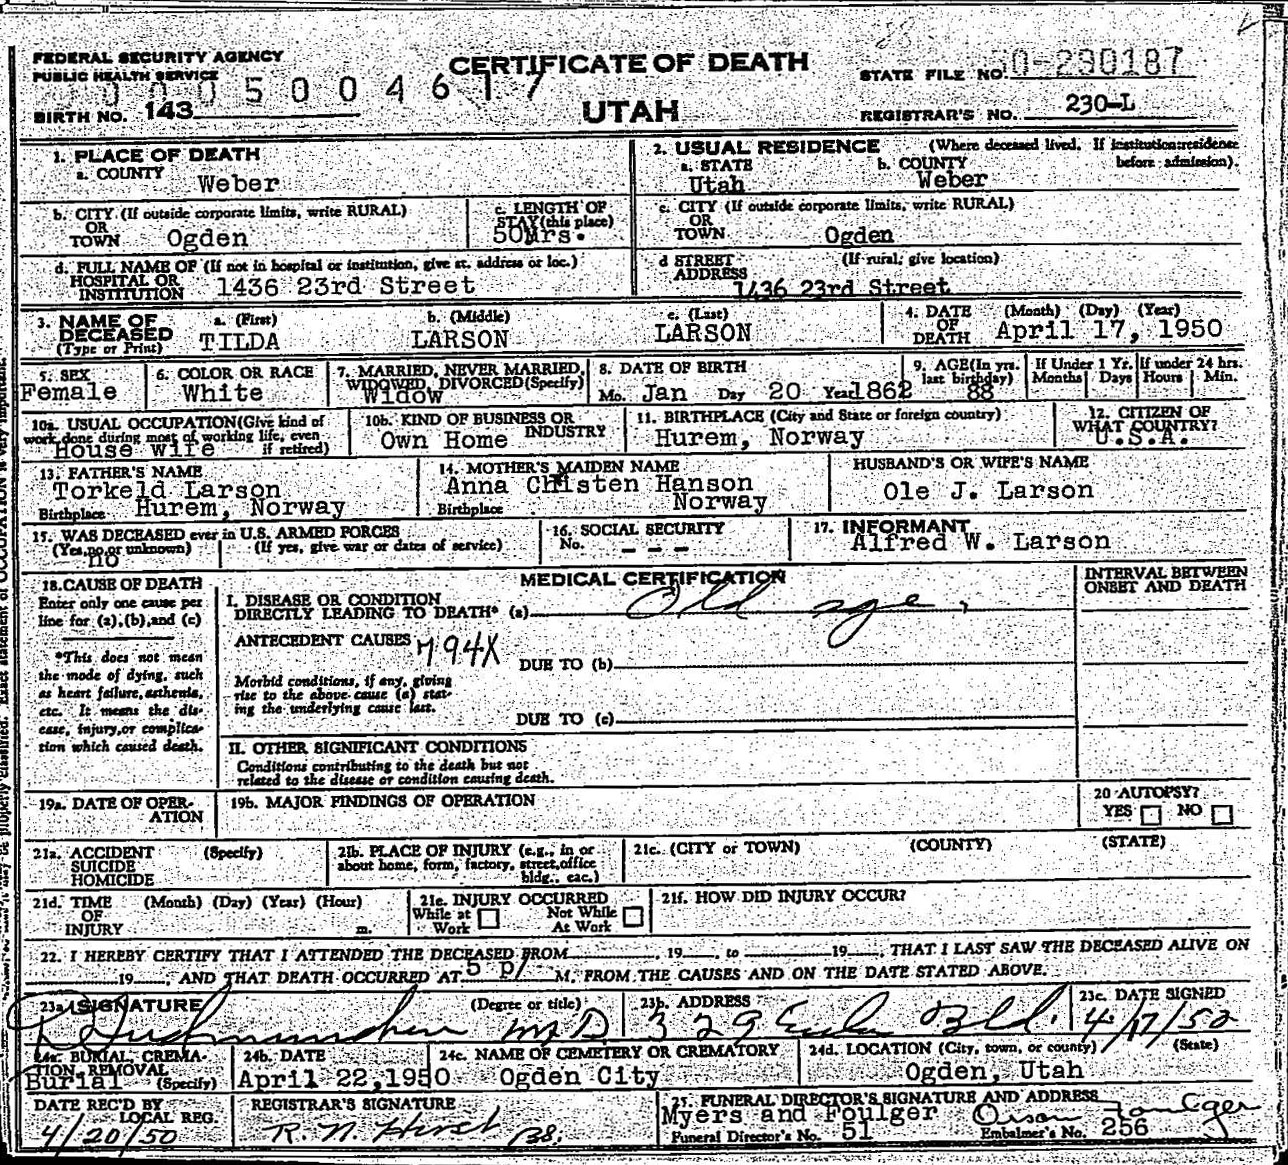 FEDERAL SECURITY AGENCY
PUBLIC HEALTH SERVICE
BIRTH NO. 143
0005004617
CERTIFICATE OF DEATH
UTAH
STATE FILE NO. 50-290187
REGISTRAR'S NO. 230-L
1. PLACE OF DEATH
a. COUNTY Weber
2. USUAL RESIDENCE (Where deceased lived. If institution: residence before admission).
a. STATE Utah b. COUNTY Weber
b. CITY (If outside corporate limits, write RURAL) OR TOWN Ogden
c. LENGTH OF STAY (this place) 50Yrs.
c. CITY (If outside corporate limits, write RURAL) OR TOWN Ogden
d. FULL NAME OF (If not in hospital or institution, give st. address or loc.) HOSPITAL OR INSTITUTION 1436 23rd Street
d STREET ADDRESS (If rural, give location) 1436 23rd Street
3. NAME OF DECEASED (Type or Print) a. (First) TILDA b. (Middle) LARSON c. (Last) LARSON
4. DATE OF DEATH (Month) (Day) (Year) April 17, 1950
5. SEX Female
6. COLOR OR RACE White
7. MARRIED, NEVER MARRIED, WIDOWED, DIVORCED (Specify) Widow
8. DATE OF BIRTH Mo. Jan Day 20 Year 1862
9. AGE (In yrs. last birthday) 88
If Under 1 Yr. Months Days
If under 24 hrs. Hours Min.
10a. USUAL OCCUPATION (Give kind of work done during most of working life, even if retired) House wife
10b. KIND OF BUSINESS OR INDUSTRY Own Home
11. BIRTHPLACE (City and State or foreign country) Hurem, Norway
12. CITIZEN OF WHAT COUNTRY? U.S.A.
13. FATHER'S NAME Torkeld Larson
Birthplace Hurem, Norway
14. MOTHER'S MAIDEN NAME Anna Christen Hanson
Birthplace Norway
HUSBAND'S OR WIFE'S NAME Ole J. Larson
15. WAS DECEASED ever in U.S. ARMED FORCES (Yes, no or unknown) (If yes, give war or dates of service) no
16. SOCIAL SECURITY No. - - -
17. INFORMANT Alfred W. Larson
18. CAUSE OF DEATH
Enter only one cause per line for (a), (b), and (c)
*This does not mean the mode of dying, such as heart failure, asthenia, etc. It means the disease, injury, or complication which caused death.
MEDICAL CERTIFICATION
INTERVAL BETWEEN ONSET AND DEATH
I. DISEASE OR CONDITION DIRECTLY LEADING TO DEATH* (a) Old age.
ANTECEDENT CAUSES 794X
DUE TO (b)
Morbid conditions, if any, giving rise to the above cause (a) stating the underlying cause last.
DUE TO (c)
II. OTHER SIGNIFICANT CONDITIONS
Conditions contributing to the death but not related to the disease or condition causing death.
19a. DATE OF OPERATION
19b. MAJOR FINDINGS OF OPERATION
20 AUTOPSY? YES NO
21a. ACCIDENT SUICIDE HOMICIDE (Specify)
21b. PLACE OF INJURY (e.g., in or about home, form, factory, street, office bldg., eac.)
21c. (CITY or TOWN) (COUNTY) (STATE)
21d. TIME OF INJURY (Month) (Day) (Year) (Hour) m.
21e. INJURY OCCURRED While at Work Not While At Work
21f. HOW DID INJURY OCCUR?
22. I HEREBY CERTIFY THAT I ATTENDED THE DECEASED FROM , 19 , to 19 , THAT I LAST SAW THE DECEASED ALIVE ON
19 , AND THAT DEATH OCCURRED AT 5 p M. FROM THE CAUSES AND ON THE DATE STATED ABOVE.
23a. SIGNATURE (Degree or title) M.D.
23b. ADDRESS 329 Bld.
23c. DATE SIGNED 4/17/50
24a. BURIAL, CREMATION, REMOVAL (Specify) Burial
24b. DATE April 22, 1950
24c. NAME OF CEMETERY OR CREMATORY Ogden City
24d. LOCATION (City, town, or county) (State) Ogden, Utah
DATE REC'D BY LOCAL REG. 4/20/50
REGISTRAR'S SIGNATURE R. N. Hirst
25. FUNERAL DIRECTOR'S SIGNATURE AND ADDRESS
Myers and Foulger Orson Foulger
Funeral Director's No. 51 Embalmer's No. 256